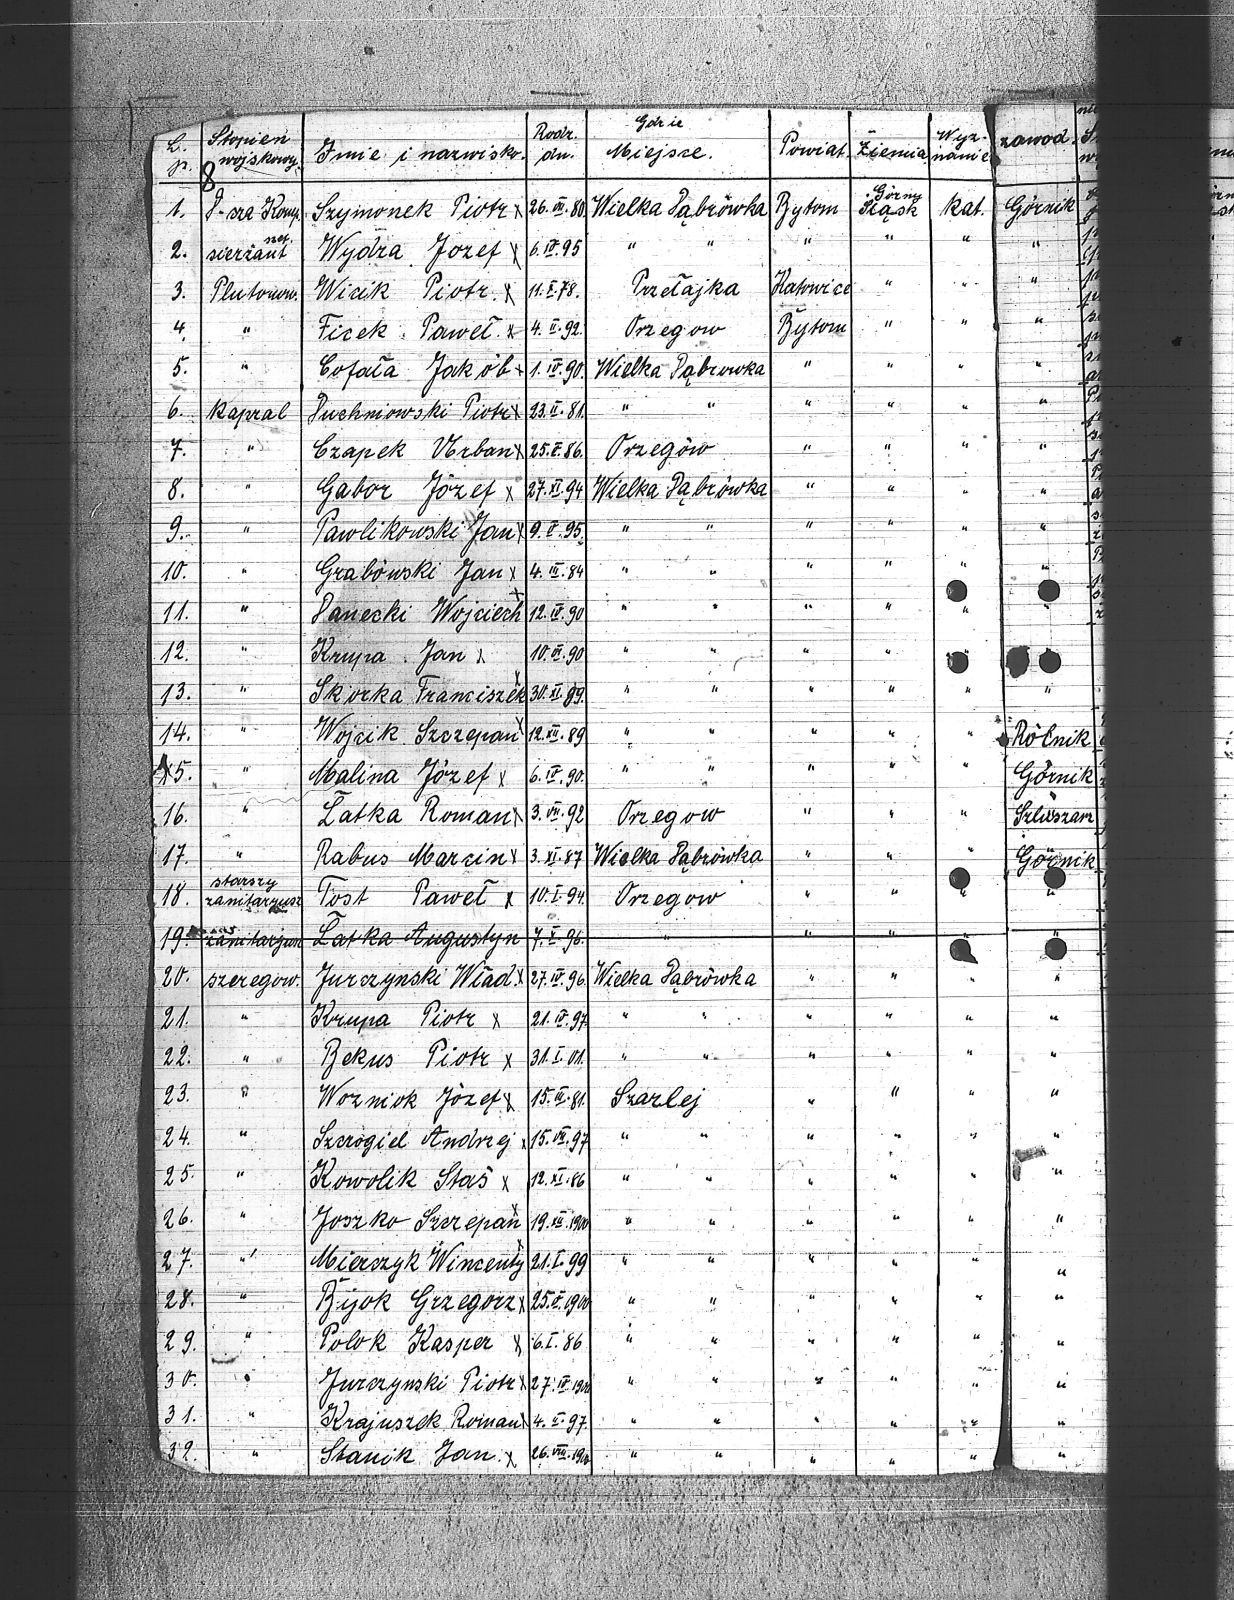 L. p. Stopień wojskowy. Imie i nazwisko. Rodz. dn. Gdzie Miejsce. Powiat Ziemia Wyz-nanie zawod.
8
1. D-sza Komp. Szymonek Piotr x 26.VI.80. Wielka Dąbrówka Bytom Górny Śląsk kat. Górnik
2. sierżant Wydra Jozef x 6.IV.95 " " " " " "
3. Plutonow. Wicik Piotr. x 11.I.78. Przełajka Katowice " " "
4. " Ficek Paweł. x 4.II.92. Orzegow Bytom " " "
5. " Cofała Jakób x 1.IV.90. Wielka Dąbrowka " " " "
6. kapral Duchniowski Piotr x 23.II.81. " " " " " "
7. " Czapek Urban x 25.V.86. Orzegów " " " "
8. " Gabor Józef x 27.XI.94 Wielka Dąbrówka " " " "
9. " Pawlikowski Jan x 9.V.95. " " " " " "
10. " Grabówski Jan x 4.III.84 " " " " " "
11. " Danecki Wojciech x 12.IV.90 " " " " "
12. " Krupa Jan x 10.VI.90 " " " "
13. " Skorka Franciszek x 30.XI.89. " " " " " "
14. " Wojcik Szczepan x 12.XII.89 " " " " " Rólnik
15. " Malina Józef x 6.IV.90. " " " " " Górnik
16. " Łatka Roman x 3.VII.92 Orzegow " " " Szlüszarz
17. " Rabus Marcin x 3.XI.87 Wielka Dąbrówka " " " Górnik
18. starszy zanitarjusz Tost Paweł x 10.I.94. Orzegow " " " "
19. zanitarjusz Łatka Augustyn 7.I.96. " " " " "
20. szeregow. Jurczynski Wład. x 27.IV.96. Wielka Dąbrówka " " " "
21. " Krupa Piotr x 21.IV.97 " " " " " "
22. " Bekus Piotr x 31.I.01. " " " " " "
23. " Wozniok Józef x 15.III.81. Szarlej " " " "
24. " Szczogiel Andrzej x 15.VII.97 " " " " " "
25. " Kowolik Staś x 12.XI.86 " " " " " "
26. " Joszko Szczepan x 19.XII.1900 " " " " " "
27. " Mierszyk Wincenty x 21.I.99 " " " " " "
28. " Bijok Grzegorz x 25.V.1900 " " " " " "
29. " Polok Kasper x 6.I.86 " " " " " "
30. " Jurczynski Piotr x 27.IV.1900 " " " " " "
31. " Krajuszek Roman x 4.II.97. " " " " " "
32. " Stanik Jan. x 26.VIII.1900 " " " " " "